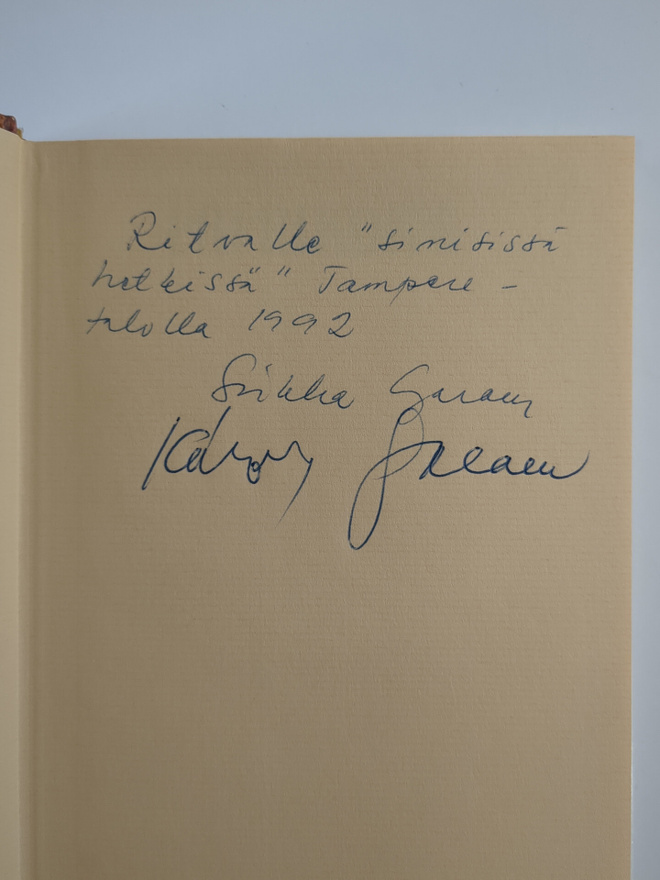 Ritvalle "sinisissä
hetkissä" Tampere-
talolla 1992
Sirkka Garam
Károly Garam